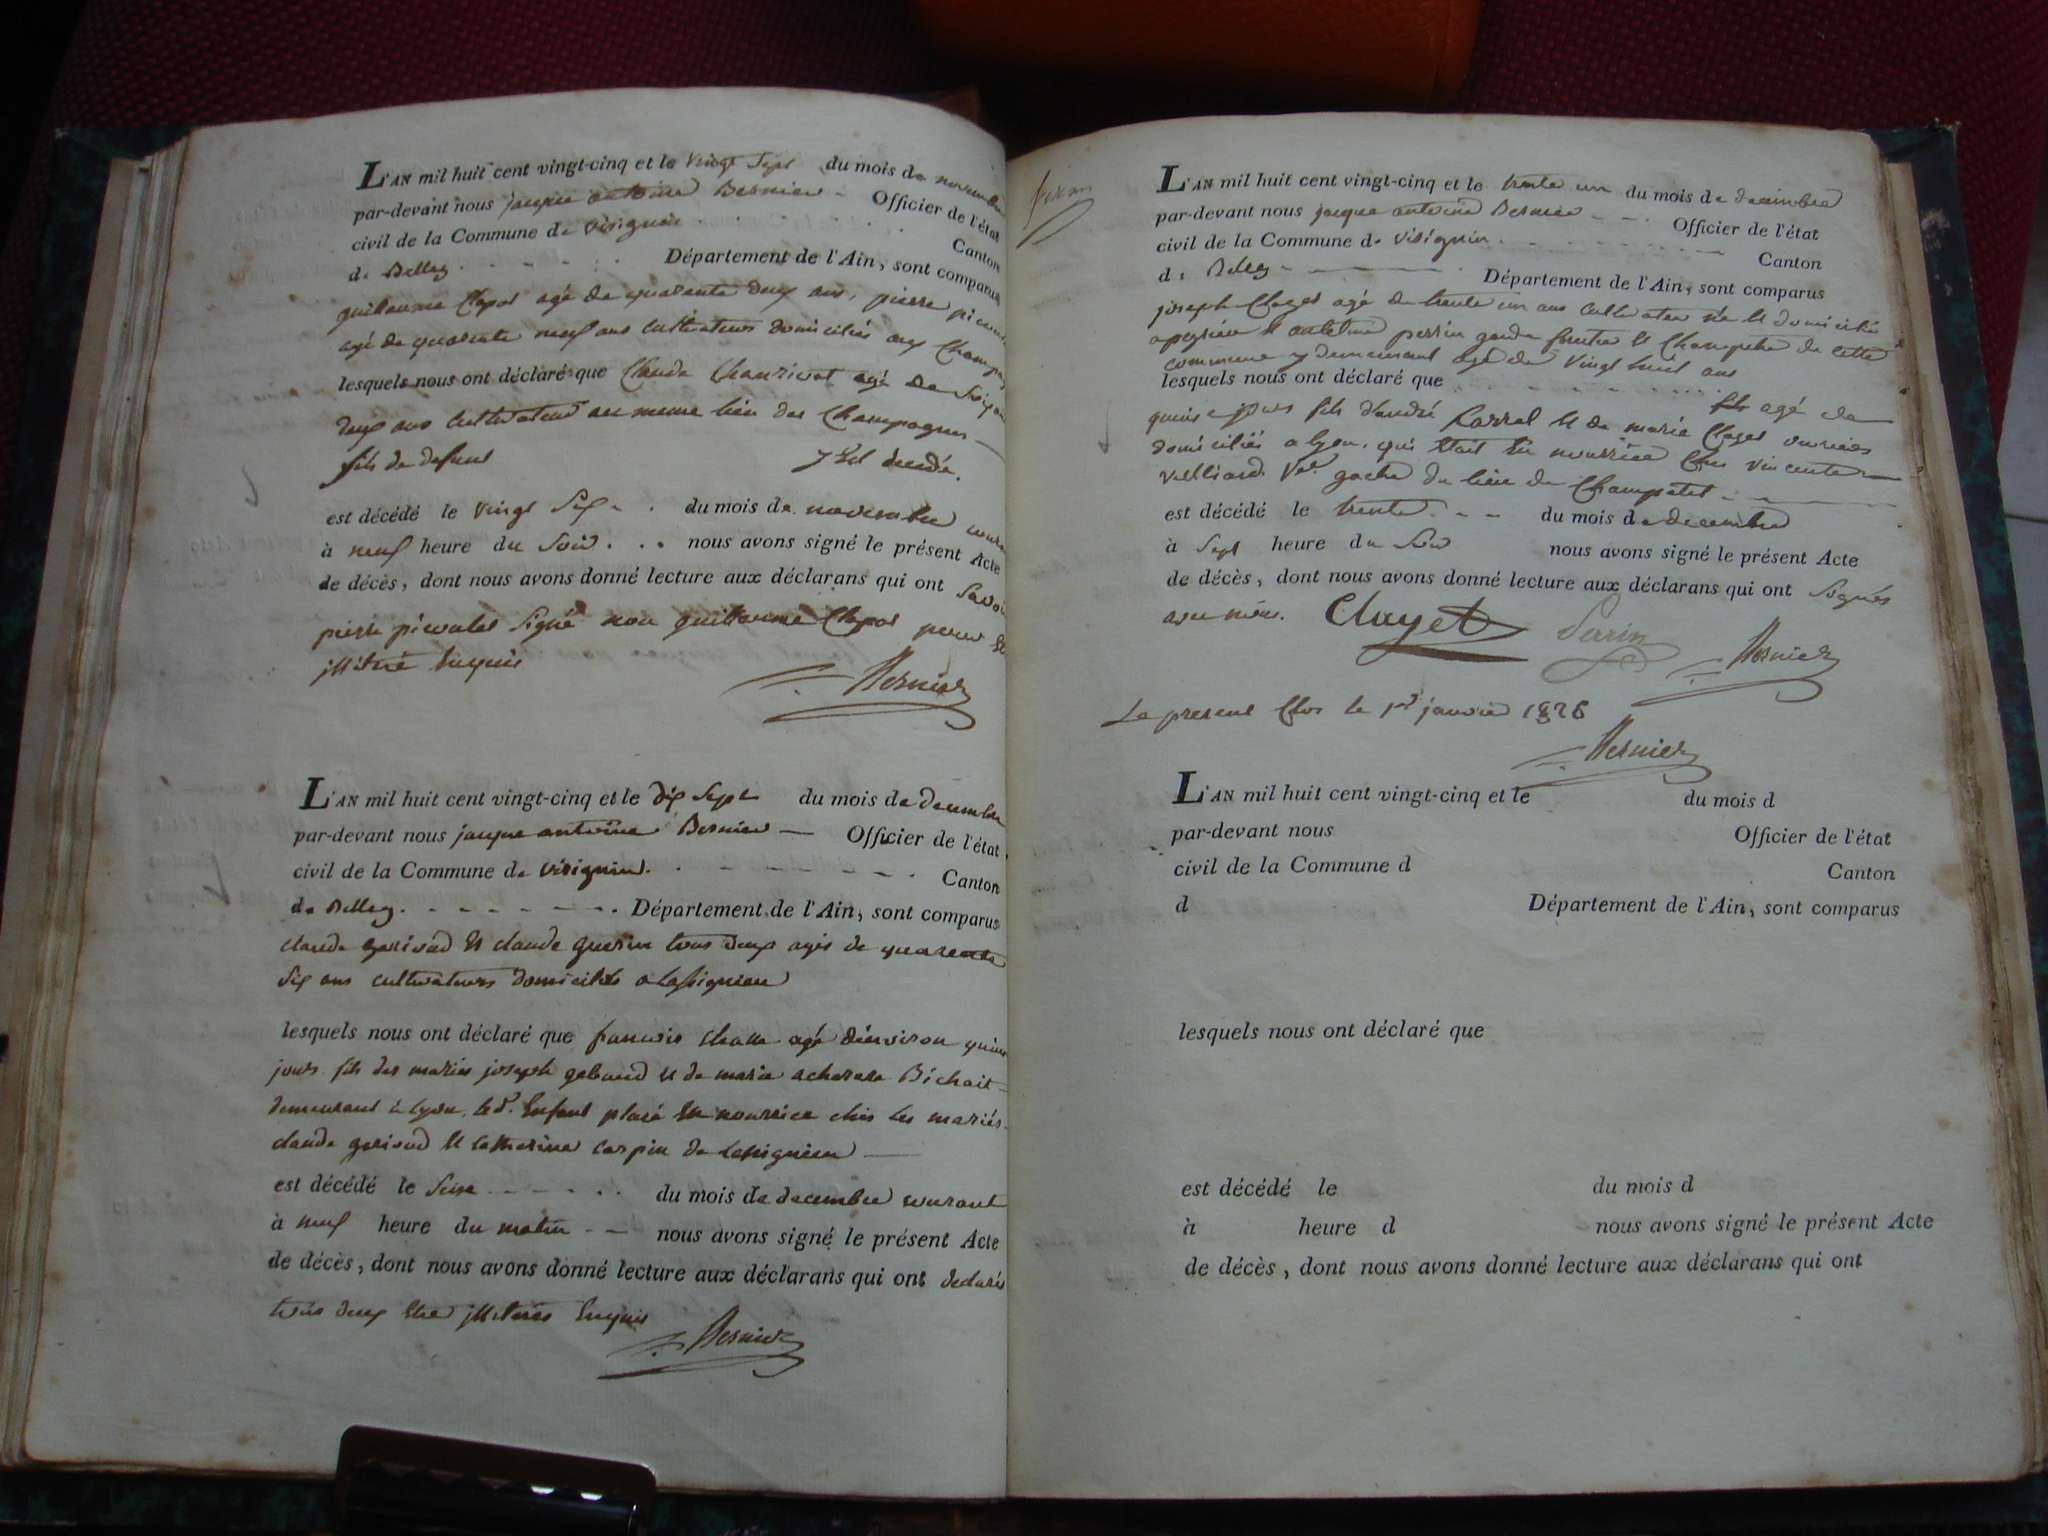 L'AN mil huit cent vingt-cinq et le vingt Sept du mois de novembre
par-devant nous jacque antoine Bernier - Officier de l'état
civil de la Commune de virignin Canton
de Belley Département de l'Ain, sont comparus
guillaume Clapot agé de quarente deux ans, pierre
agé de quarente neuf ans cultivateurs domiciliés aux
lesquels nous ont déclaré que Claude agé de
deux ans cultivateur au meme lieu des Champagnes
fils de defunt y est decedé.
est décédé le vingt Six du mois de novembre
à neuf heure du Soir nous avons signé le présent Acte
de décès, dont nous avons donné lecture aux déclarans qui ont Savoir
pierre Signé non guillaume Clapot pour
illitéré Enquis
Bernier
L'AN mil huit cent vingt-cinq et le dix Sept du mois de decembre
par-devant nous jacque antoine Bernier — Officier de l'état
civil de la Commune de virignin Canton
de Belley Département de l'Ain, sont comparus
claude et claude guerin tous deux agés de quarente
Six ans cultivateurs domiciliés a
lesquels nous ont déclaré que francois agé d'environ quinze
jours fils des mariés joseph et de marie
demeurant à Lyon, led. Enfant placé En nourrice chés les mariés
claude et catherine carpin de
est décédé le Seise du mois de decembre courant
à neuf heure du matin nous avons signé le présent Acte
de décès, dont nous avons donné lecture aux déclarans qui ont declarés
tous deux Etre illiterés Enquis
Bernier
L'AN mil huit cent vingt-cinq et le trente un du mois de decembre
par-devant nous jacque antoine Bernier Officier de l'état
civil de la Commune de virignin Canton
de Belley Département de l'Ain, sont comparus
joseph Clayet agé de trente un ans cultivateur né et domicilié
a peyrieu et antelme perrin garde foretier et Champetre de cette
commune y demeurant agé de vingt huit ans
lesquels nous ont déclaré que agé de
quinse jours fils d'andré et de marie Clayet ouvriers
domiciliés a lyon, qui Etait En nourrice Chés vincente
Ve. gache du lieu de
est décédé le trente du mois de decembre
à Sept heure du Soir nous avons signé le présent Acte
de décès, dont nous avons donné lecture aux déclarans qui ont Signés
avec nous. Clayet Perrin Bernier
Le present Clos le 1er janvier 1826
Bernier
L'AN mil huit cent vingt-cinq et le du mois d
par-devant nous Officier de l'état
civil de la Commune d Canton
d Département de l'Ain, sont comparus
lesquels nous ont déclaré que
est décédé le du mois d
à heure d nous avons signé le présent Acte
de décès, dont nous avons donné lecture aux déclarans qui ont